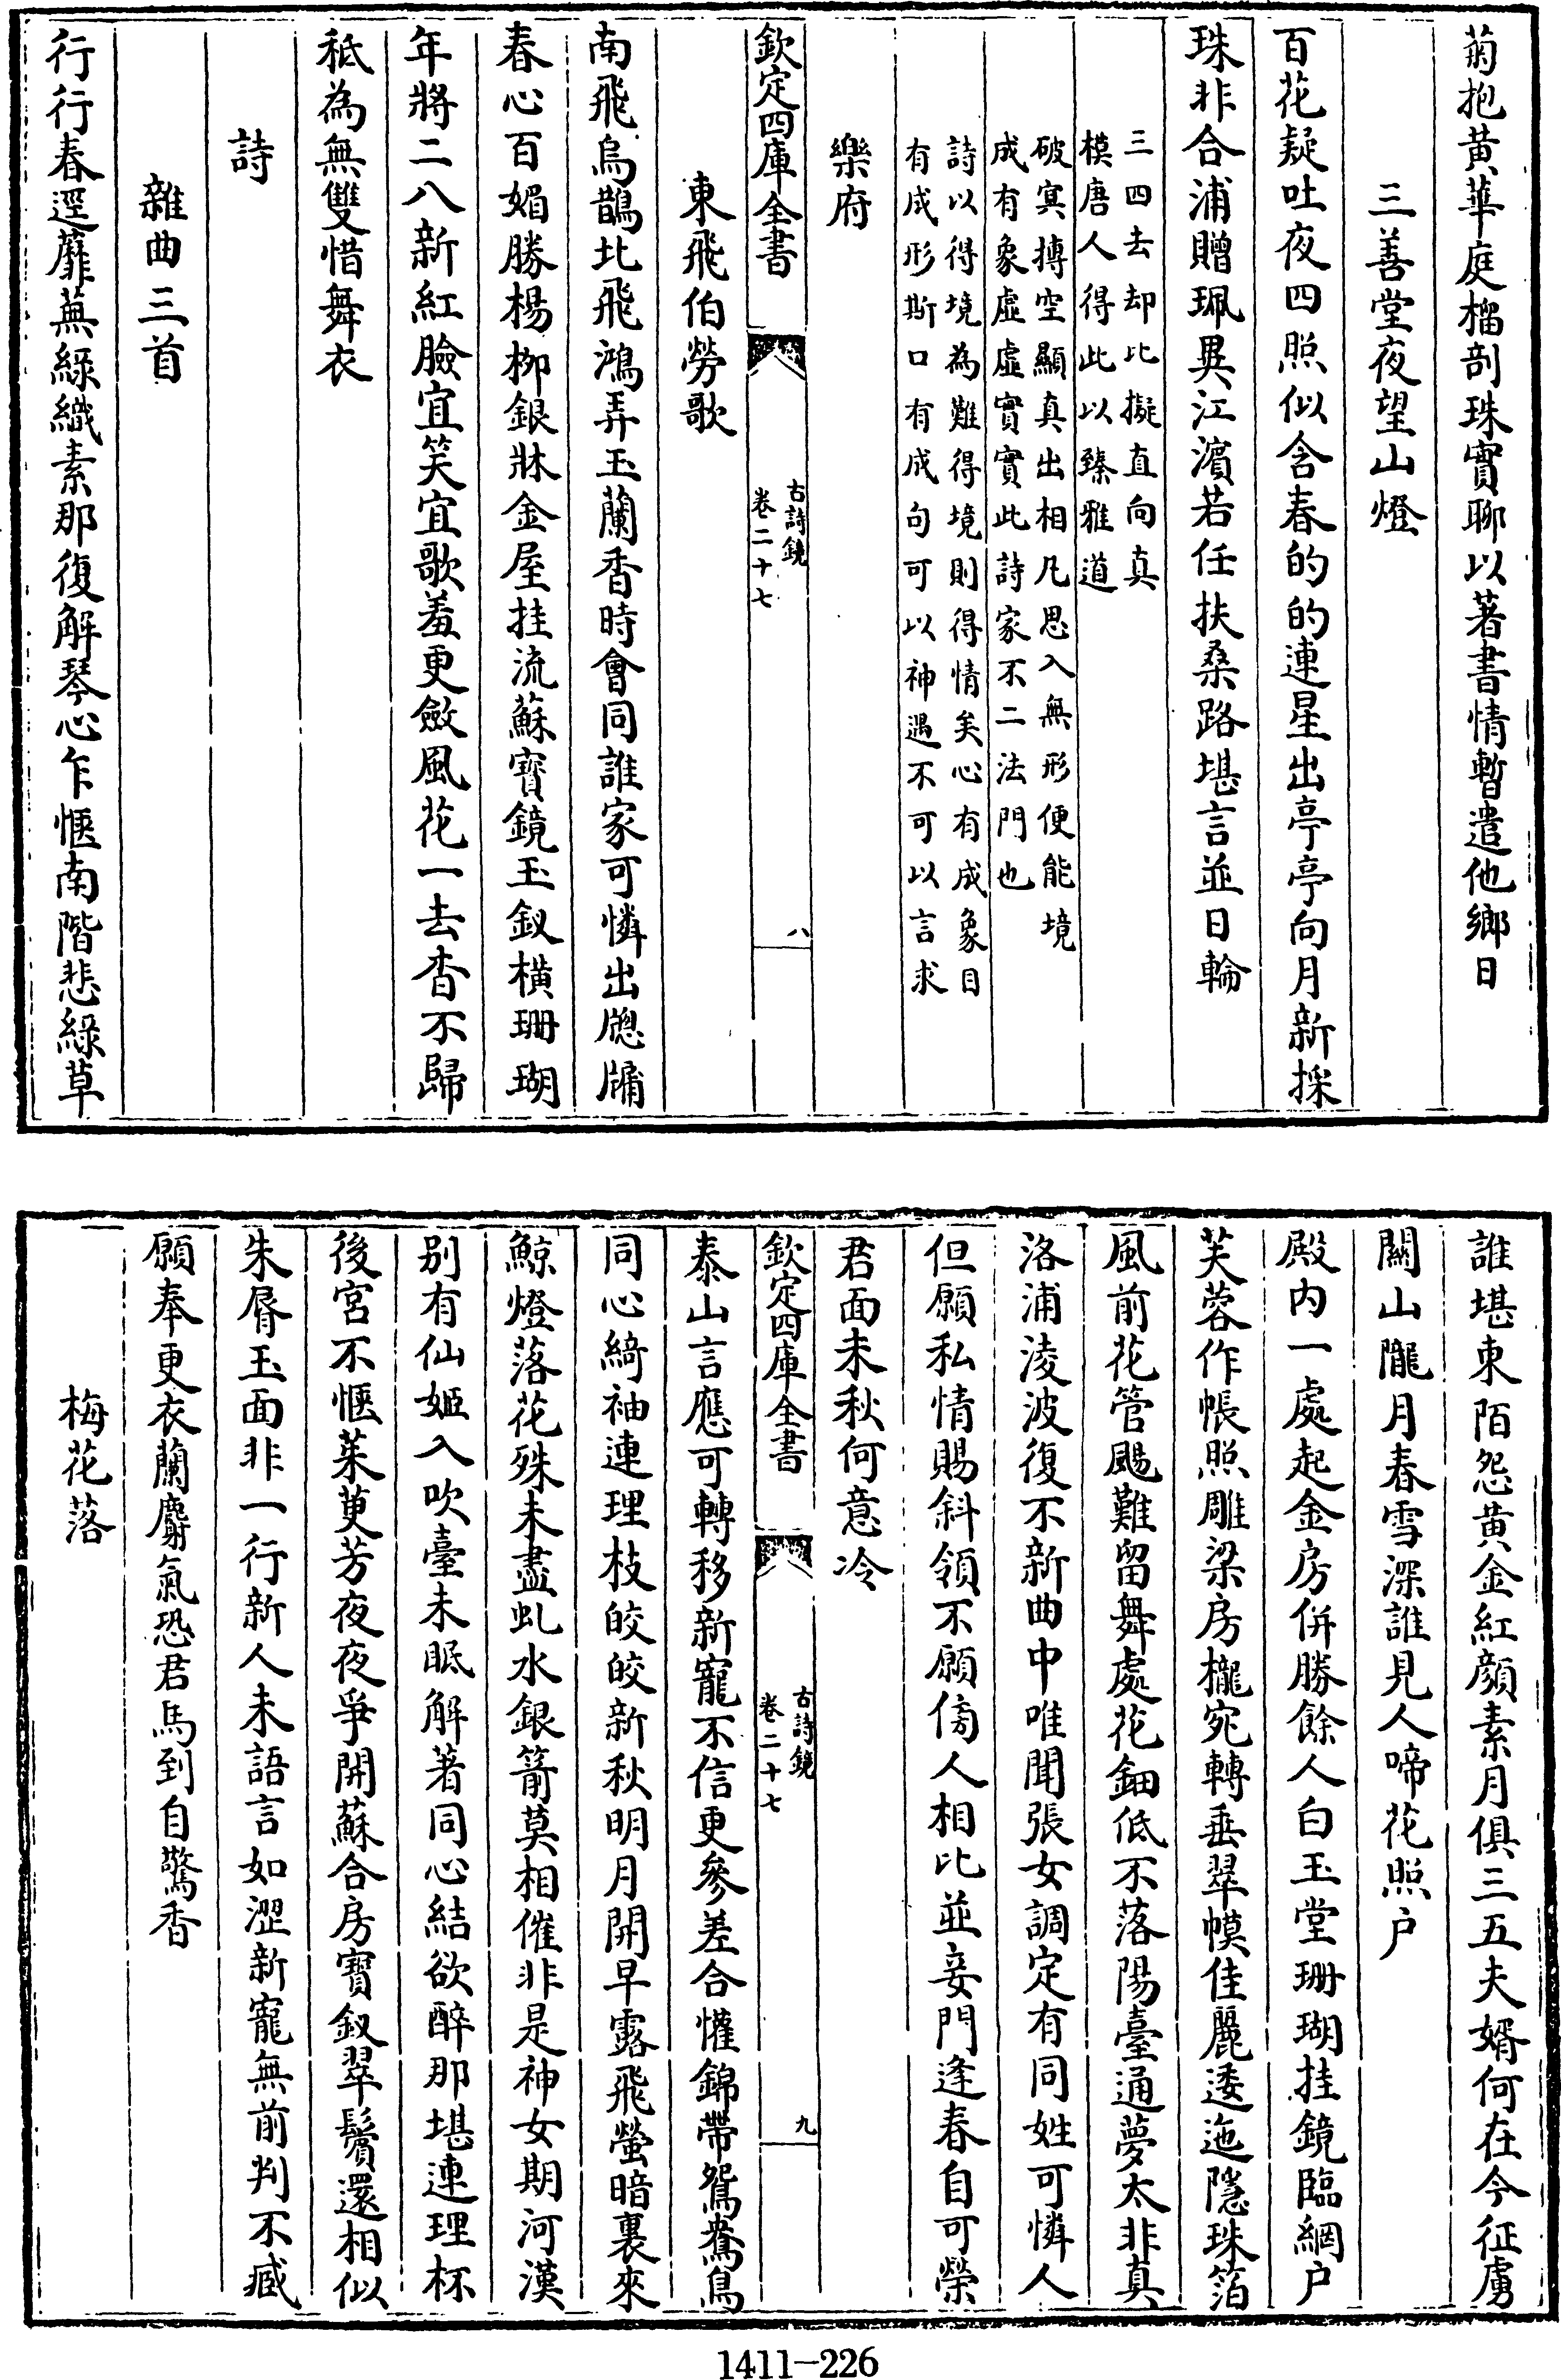 菊抱黄華庭榴剖珠實聊以著書情暫遣他鄉日
三善堂夜望山燈
百花疑吐夜四照似含春的的連星出亭亭向月新採
珠非合浦贈珮異江濵若任扶桑路堪言並日輪
三四去却比擬直向真
模唐人得此以臻雅道
破㝠摶空顯真出相凡思入無形便能境
成有象虛虛實實此詩家不二法門也
詩以得境為難得境則得情矣心有成象目
有成形斯口有成句可以神遇不可以言求
樂府
欽定四庫全書
古詩鏡
卷二十七
八
東飛伯勞歌
南飛烏鵲北飛鴻弄玉蘭香時會同誰家可憐出牎牗
春心百媚勝楊柳銀牀金屋挂流蘇寳鏡玉釵橫珊瑚
年將二八新紅臉宜笑宜歌羞更斂風花一去杳不歸
秪為無雙惜舞衣
詩
雜曲三首
行行春逕蘼蕪緑織素那復解琴心乍愜南階悲緑草
誰堪東陌怨黄金紅顔素月俱三五夫婿何在今征虜
關山隴月春雪深誰見人啼花照户
殿内一處起金房併勝餘人白玉堂珊瑚挂鏡臨網户
芙蓉作帳照雕梁房櫳宛轉垂翠幙佳麗逶迤隱珠箔
風前花管颺難留舞處花鈿低不落陽臺通夢太非真
洛浦淩波復不新曲中唯聞張女調定有同姓可憐人
但願私情賜斜領不願傍人相比並妾門逢春自可榮
君面未秋何意冷
欽定四庫全書
古詩鏡
卷二十七
九
泰山言應可轉移新寵不信更參差合懽錦帶鴛鴦鳥
同心綺袖連理枝皎皎新秋明月開早露飛螢暗裏來
鯨燈落花殊未盡虬水銀箭莫相催非是神女期河漢
别有仙姬入吹臺未眠解著同心結欲醉那堪連理杯
後宮不愜茱萸芳夜夜爭開蘇合房寳釵翠鬢還相似
朱脣玉面非一行新人未語言如澀新寵無前判不臧
願奉更衣蘭麝氣恐君馬到自驚香
梅花落
1411—226